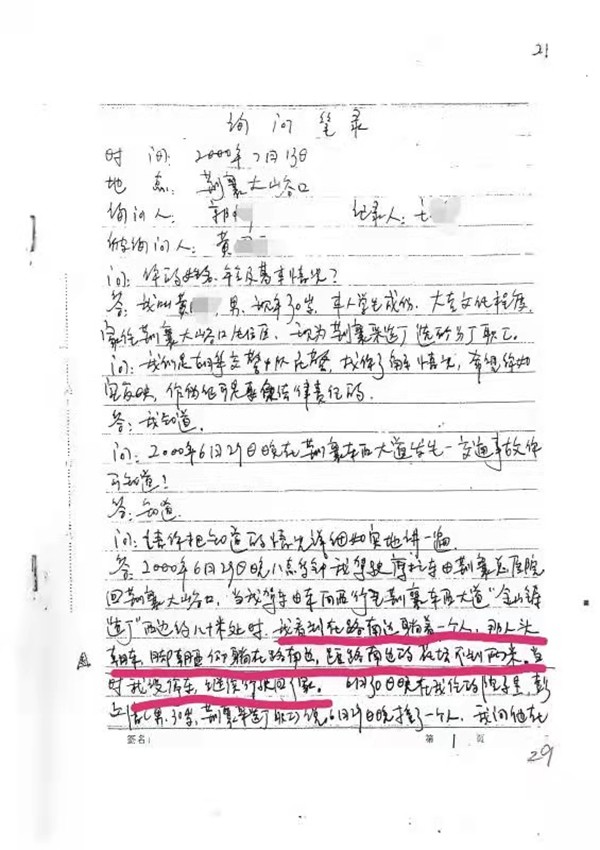 21
询问笔录
时 间：2000年7月13日
地 点：荆襄大山谷口
询问人：郭 记录人：
被询问人：黄
问：你的姓名、年令及基本情况？
答：我叫黄 ，男，现年30岁，本人学生成份，大专文化程度，
家住荆襄大山谷口住宅区，现为荆襄采选厂选矿分厂职工。
问：我们是 交警 民警，找你了解 情况，希望你如
实反映，作伪证可是要负法律责任的。
答：我知道。
问：2000年6月29日晚在荆襄东西大道发生一交通事故你
可知道？
答：知道
问：请你把知道的情况详细如实地讲一遍
答：2000年6月29日晚八点 分钟我驾驶摩托车由荆襄总医院
回荆襄大山谷口，当我驾车由东向西行至荆襄东西大道"金山铸
造厂"西边约几十米处时，我看到在路南边躺着一个人，那人头
朝东，脚朝西仰躺在路南边，距路南边的 不到两米。当
时我没停车，继续行驶回了家。 6月30日晚在我住的 ，彭
男，30岁，荆襄 厂职工说，6月29日晚撞了一个人，我问他在
签名： 第 1 页
29